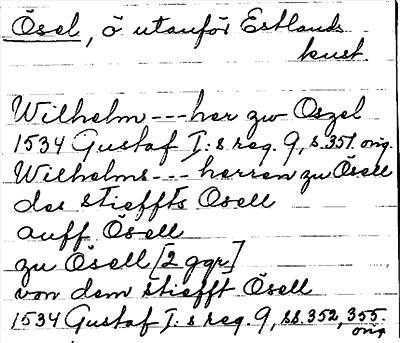 Ösel, ö utanför Estlands
kust.
Wilhelm --- her zw Oszel
1534 Gustaf I:s reg. 9, s. 351. orig.
Wilhelms --- herren zu Ösell
des stieffts Osell
auff Ösell
zu Ösell [2 ggr]
von dem stiefft Ösell
1534 Gustaf I:s reg. 9, ss. 352, 355.
orig.